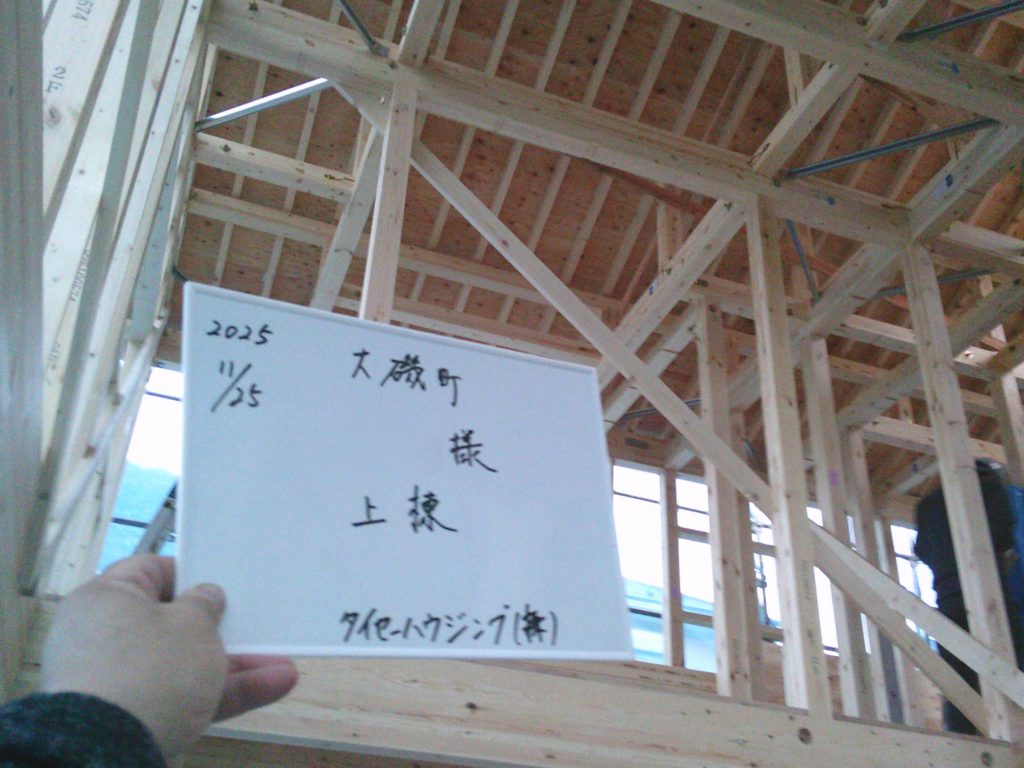 2025
11/25
大磯町
様
上棟
タイセーハウジング(株)